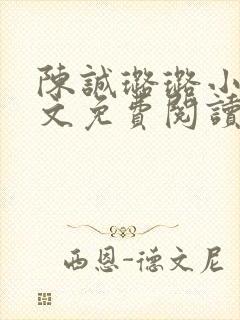 陳誠璐璐小
文免費閱讀
西恩-德文尼